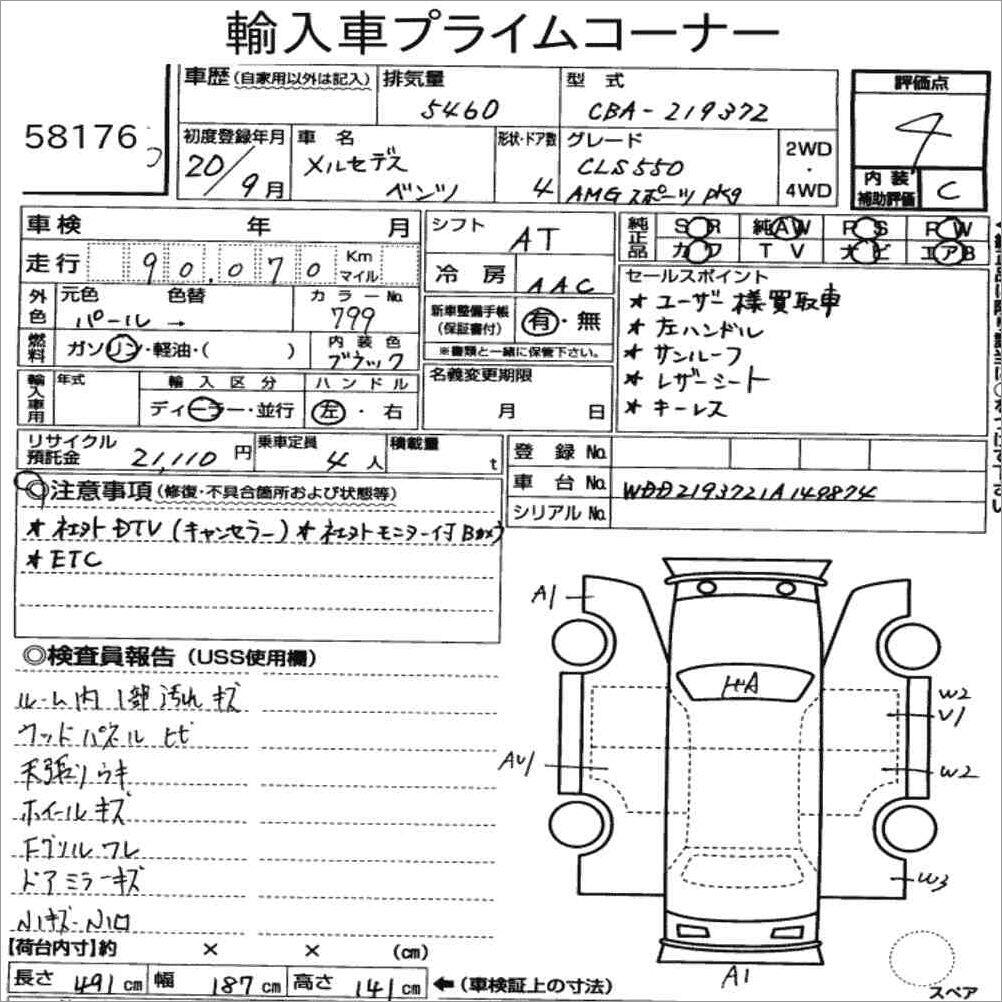 輸入車プライムコーナー
58176
車歴(自家用以外は記入)
排気量
5460
型式
CBA-219372
評価点
4
初度登録年月
20/9月
車名
メルセデス
ベンツ
形状・ドア数
4
グレード
CLS550
AMGスポーツpkg
2WD
・
4WD
内装
補助評価
C
車検 年 月
シフト
AT
純正品
SR 純AW PS PW
カワ TV ナビ エアB
走行 90,070 Km
マイル
冷房
AAC
セールスポイント
* ユーザー様買取車
* 左ハンドル
* サンルーフ
* レザーシート
* キーレス
外色
元色 色替
パール →
カラーNo.
799
新車整備手帳
(保証書付)
有・無
※書類と一緒に保管下さい。
燃料
ガソリン・軽油・( )
内装色
ブラック
名義変更期限
月 日
輸入車用
年式
輸入区分
ディーラー・並行
ハンドル
左・右
リサイクル
預託金 21,110 円
乗車定員
4人
積載量
t
登録No.
車台No.
WDD2193721A149874
シリアルNo.
◎注意事項(修復・不具合箇所および状態等)
* 社外DTV(キャンセラー) * 社外モニター付Bカメラ
* ETC
◎検査員報告(USS使用欄)
ルーム内1部汚れキズ
ウッドパネルヒビ
天張りウキ
ホイールキズ
Fグリルワレ
ドアミラーキズ
A1
A
W2
U1
AU1
W2
W3
A1
【荷台内寸】約 × × (cm)
長さ 491cm 幅 187cm 高さ 141cm ←(車検証上の寸法)
スペア